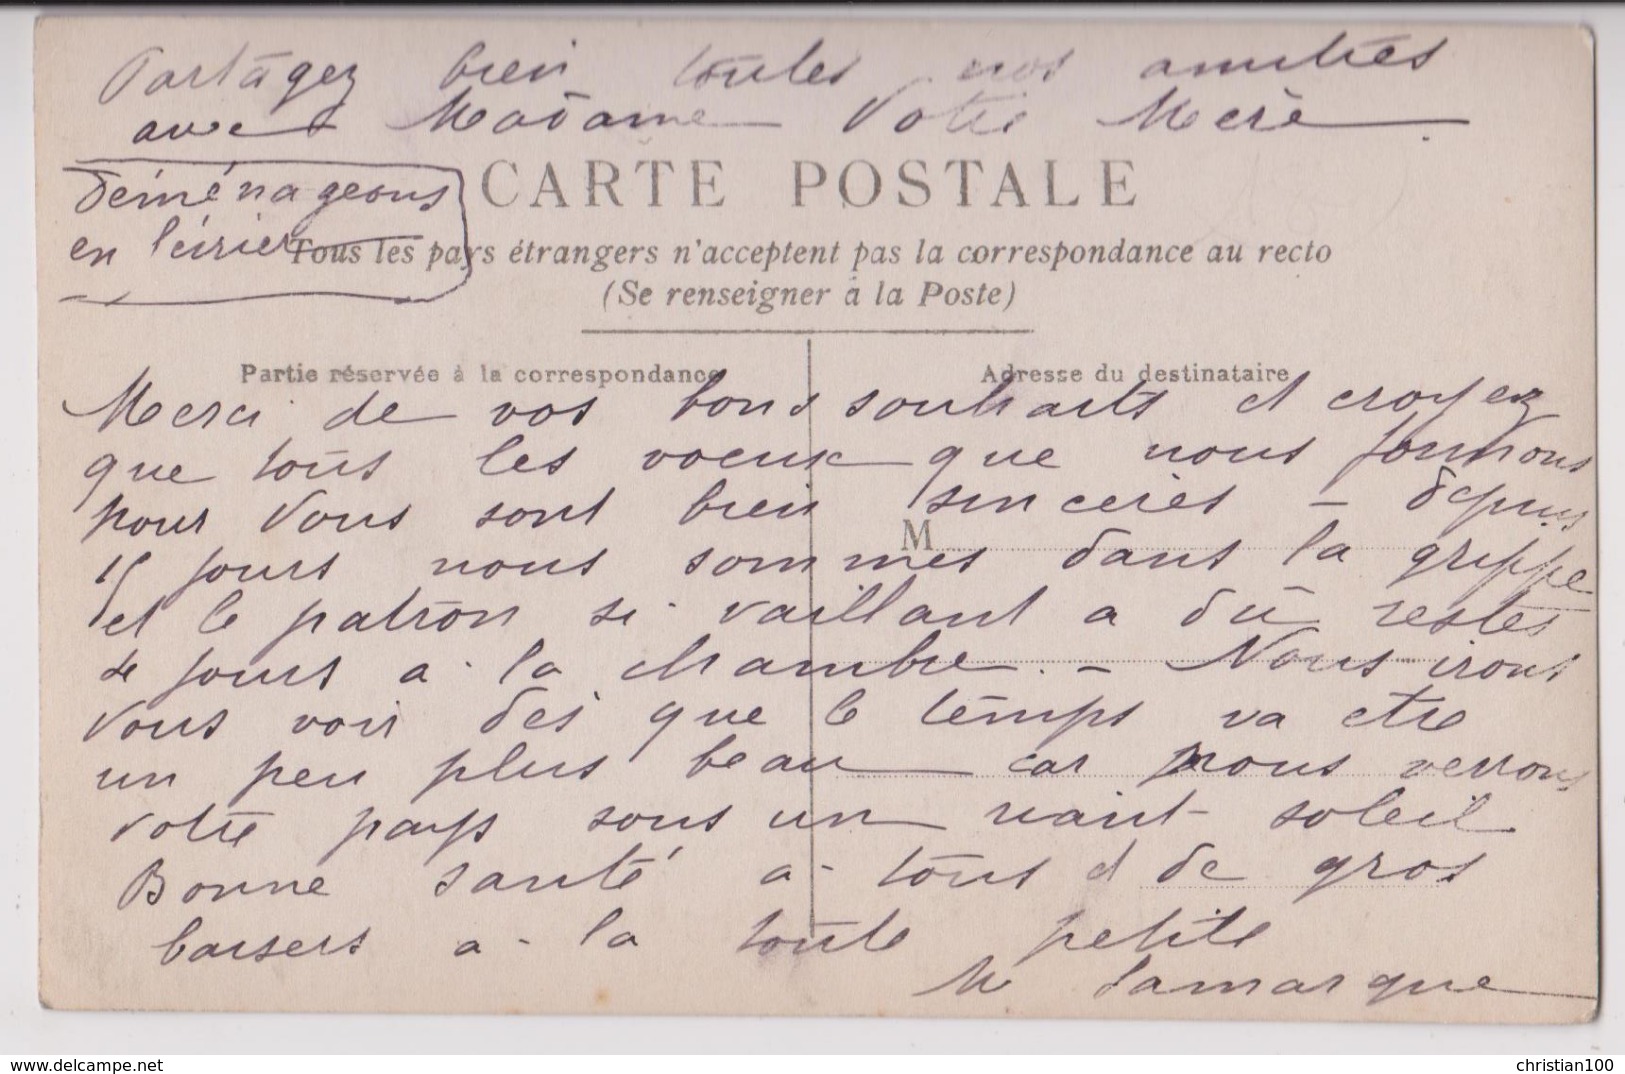 Partagez bien toutes nos amitiés
avec Madame Votre Mère
déménageons
en février
CARTE POSTALE
Tous les pays étrangers n'acceptent pas la correspondance au recto
(Se renseigner à la Poste)
Partie réservée à la correspondance
Adresse du destinataire
Merci de vos bons souhaits et croyez
que tous les voeux que nous formons
pour vous sont bien sincères – depuis
M
15 jours nous sommes dans la grippe
et le patron si vaillant a dû rester
4 jours à la chambre. – Nous irons
vous voir dès que le temps va être
un peu plus beau car nous verrons
votre pays sous un riant soleil
Bonne santé à tous et de gros
baisers à la toute petite
M Lamarque
www.delcampe.net
christian100